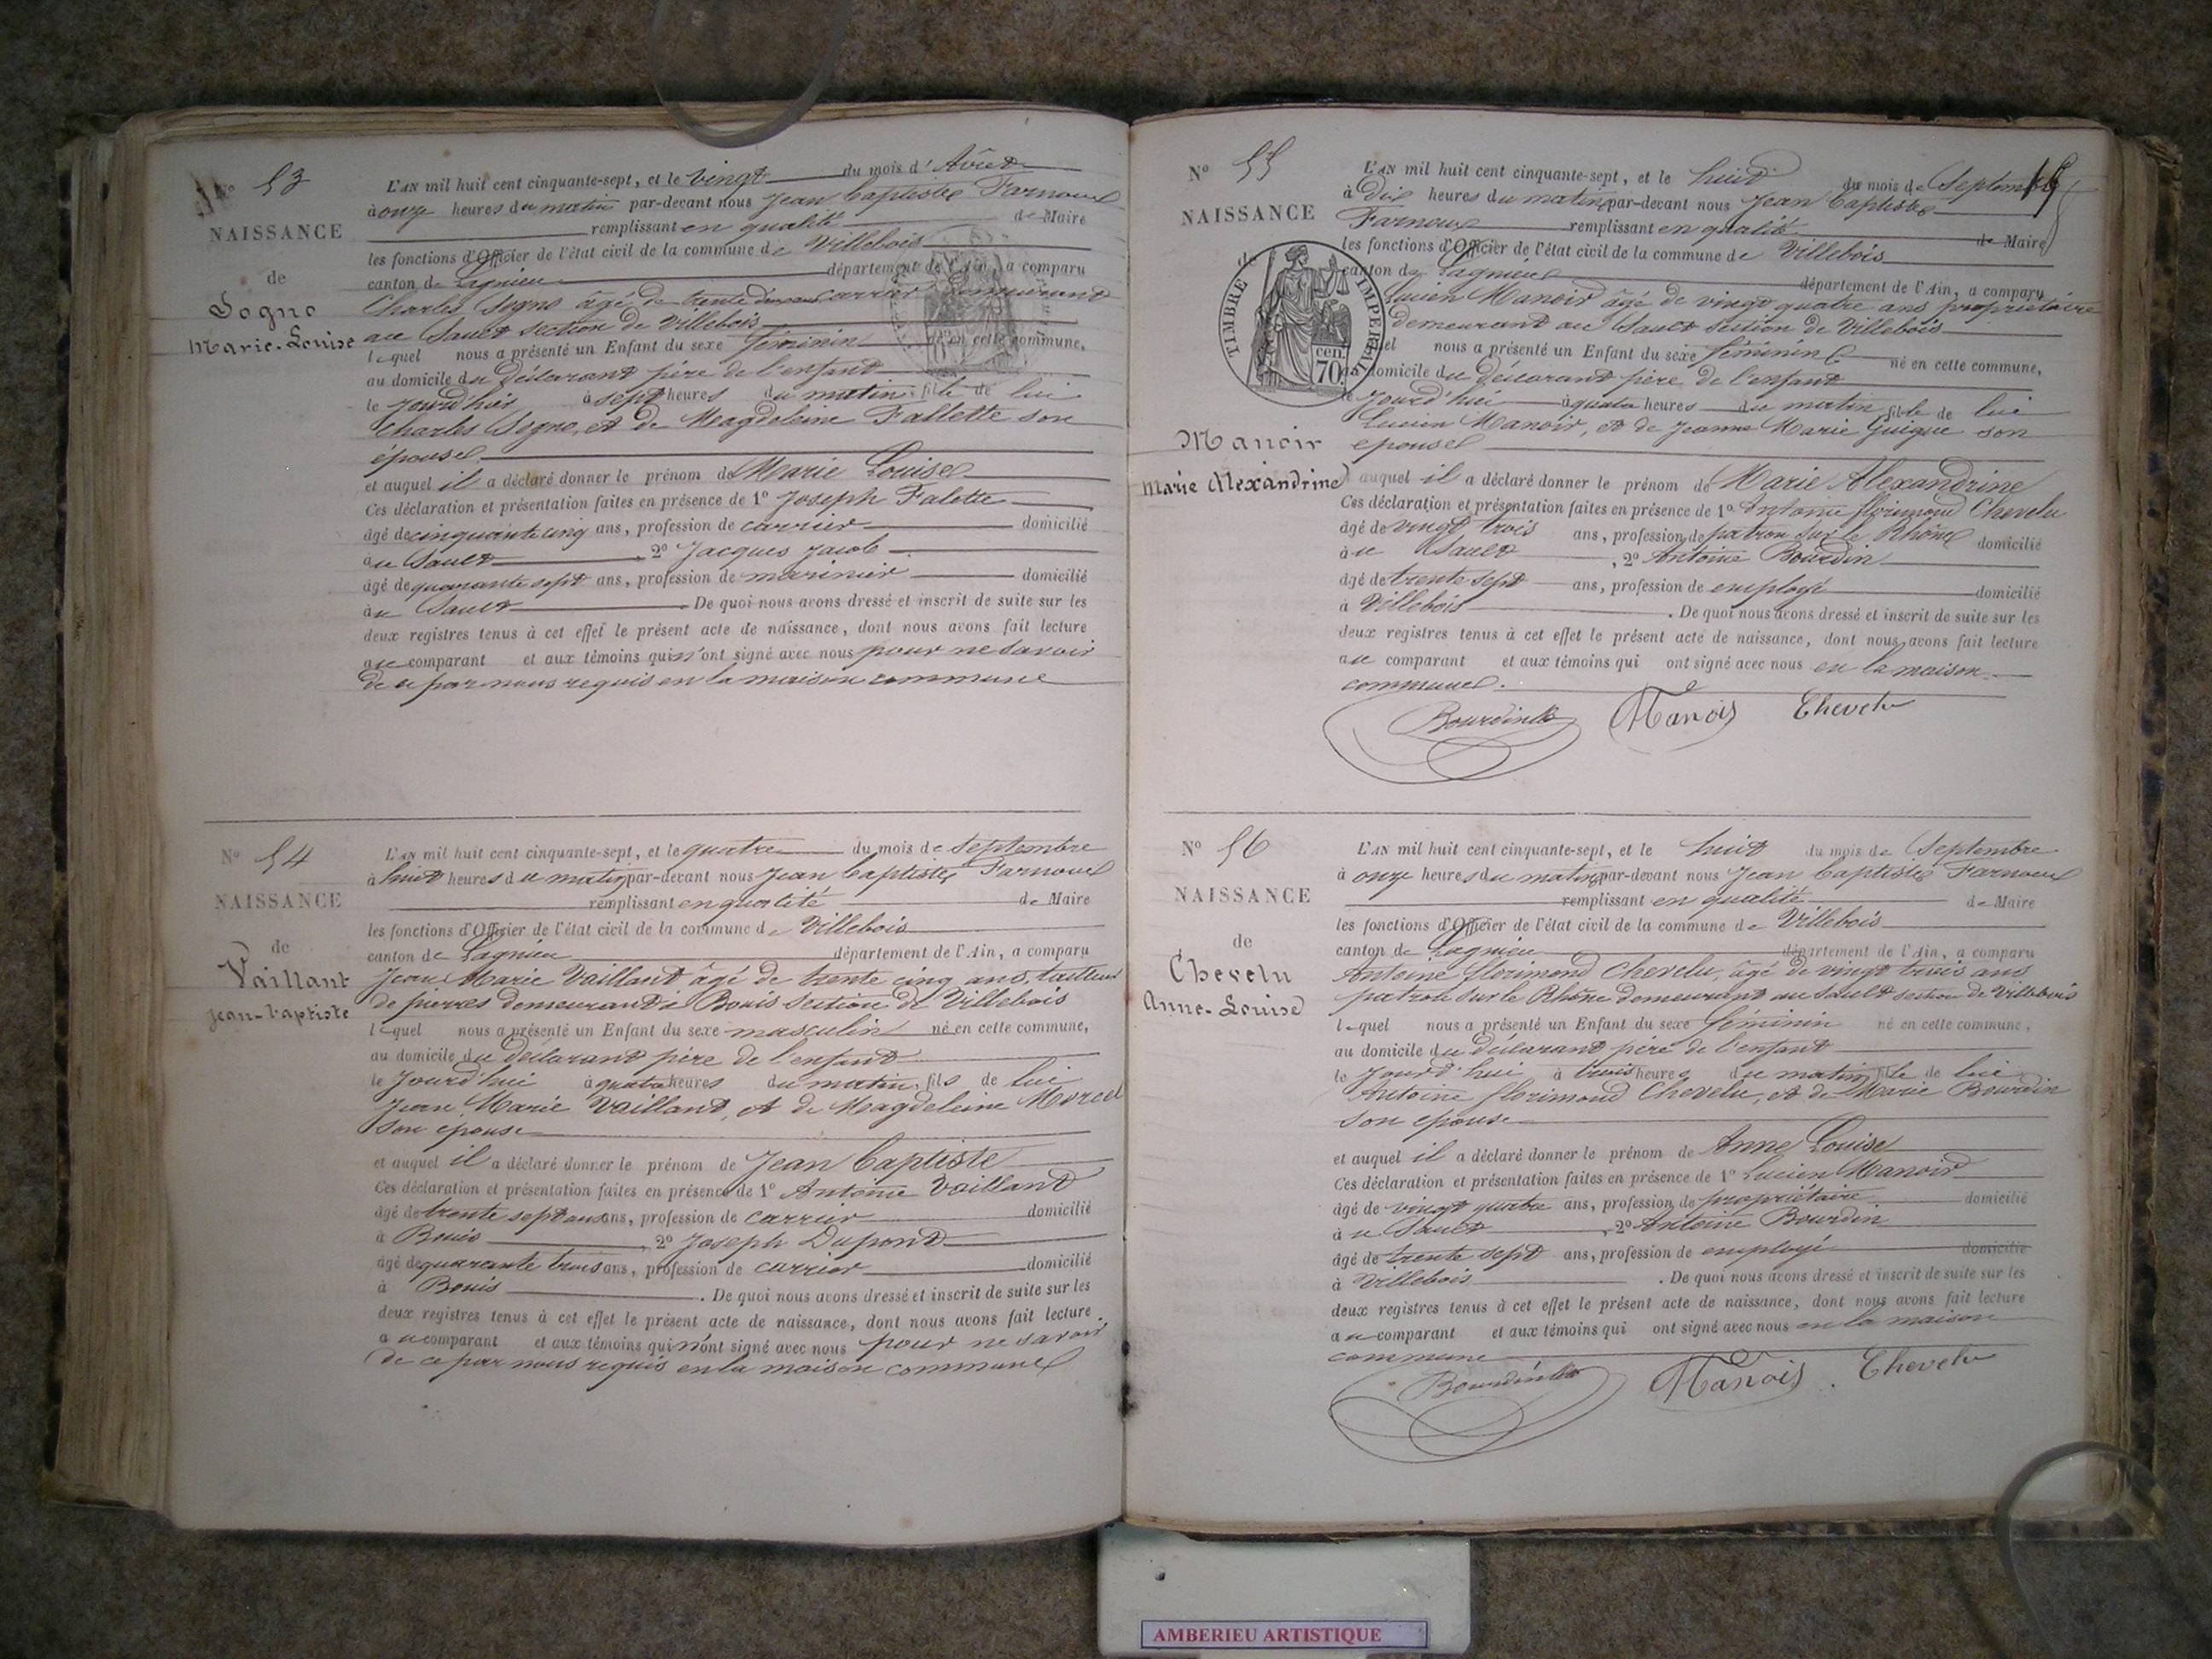 N° 53
NAISSANCE
de
Sogno
Marie-Louise
L'AN mil huit cent cinquante-sept, et le vingt du mois d'Août
à onze heures du matin par-devant nous Jean baptiste Farnoux
remplissant en qualité de Maire
les fonctions d'Officier de l'état civil de la commune de Villebois
canton de Lagnieu département de l'Ain, a comparu
Charles Sogno âgé de trente deux ans carrier demeurant
au Sault section de Villebois
lequel nous a présenté un Enfant du sexe féminin né en cette commune,
au domicile du déclarant père de l'enfant
le à sept heures du matin fille de lui
Charles Sogno, et de Magdeleine Fallette son
épouse
et auquel il a déclaré donner le prénom de Marie Louise
Ces déclaration et présentation faites en présence de 1° Joseph Falette
âgé de cinquante cinq ans, profession de carrier domicilié
au Sault , 2° Jacques Jacob
âgé de quarante sept ans, profession de marinier domicilié
au Sault De quoi nous avons dressé et inscrit de suite sur les
deux registres tenus à cet effet le présent acte de naissance, dont nous avons fait lecture
au comparant et aux témoins qui n'ont signé avec nous pour ne savoir
de ce par nous requis en la maison commune
N° 54
NAISSANCE
de
Vaillant
Jean-baptiste
L'AN mil huit cent cinquante-sept, et le quatre du mois de septembre
à huit heures du matin par-devant nous Jean baptiste Farnoux
remplissant en qualité de Maire
les fonctions d'Officier de l'état civil de la commune de Villebois
canton de Lagnieu département de l'Ain, a comparu
Jean Marie Vaillant âgé de trente cinq ans, tailleur
de pierres demeurant à Bouis section de Villebois
lequel nous a présenté un Enfant du sexe masculin né en cette commune,
au domicile du déclarant père de l'enfant
le Jourd'hui à quatre heures du matin fils de lui
Jean Marie Vaillant, et de Magdeleine Morcel
son epouse
et auquel il a déclaré donner le prénom de Jean baptiste
Ces déclaration et présentation faites en présence de 1° Antoine Vaillant
âgé de trente sept ans ans, profession de carrier domicilié
à Bouis , 2° Joseph Dupont
âgé de quarante trois ans, profession de carrier domicilié
à Bouis . De quoi nous avons dressé et inscrit de suite sur les
deux registres tenus à cet effet le présent acte de naissance, dont nous avons fait lecture
au comparant et aux témoins qui n'ont signé avec nous pour ne savoir
de ce par nous requis en la maison commune
N° 55
NAISSANCE
de
TIMBRE IMPERIAL
cen.
70.
Manoir
Marie Alexandrine
L'AN mil huit cent cinquante-sept, et le huit du mois de Septembre
à Dix heures du matin par-devant nous Jean baptiste
Farnoux remplissant en qualité de Maire
les fonctions d'Officier de l'état civil de la commune de Villebois
canton de Lagnieu département de l'Ain, a comparu
Lucien Manoir âgé de vingt quatre ans propriétaire
demeurant au Sault section de Villebois
lequel nous a présenté un Enfant du sexe féminin né en cette commune,
au domicile du déclarant père de l'enfant
le Jourd'hui à quatre heures du matin fille de lui
Lucien Manoir, et de Jeanne Marie Guigue son
epouse
et auquel il a déclaré donner le prénom de Marie Alexandrine
Ces déclaration et présentation faites en présence de 1° Antoine florimond Chevelu
âgé de vingt trois ans, profession de patron sur le Rhône domicilié
au Sault , 2° Antoine Bourdin
âgé de trente sept ans, profession de employé domicilié
à Villebois . De quoi nous avons dressé et inscrit de suite sur les
deux registres tenus à cet effet le présent acte de naissance, dont nous avons fait lecture
au comparant et aux témoins qui ont signé avec nous en la maison
commune.
Bourdin Manoir Chevelu
N° 56
NAISSANCE
de
Chevelu
Anne-Louise
L'AN mil huit cent cinquante-sept, et le huit du mois de Septembre
à onze heures du matin par-devant nous Jean baptiste Farnoux
remplissant en qualité de Maire
les fonctions d'Officier de l'état civil de la commune de Villebois
canton de Lagnieu département de l'Ain, a comparu
Antoine florimond Chevelu, âgé de vingt trois ans
patron sur le Rhône demeurant au Sault section de Villebois
lequel nous a présenté un Enfant du sexe féminin né en cette commune,
au domicile du déclarant père de l'enfant
le Jourd'hui à trois heures du matin fille de lui
Antoine florimond Chevelu, et de Marie Bourdin
son epouse
et auquel il a déclaré donner le prénom de Anne Louise
Ces déclaration et présentation faites en présence de 1° Lucien Manoir
âgé de vingt quatre ans, profession de propriétaire domicilié
au Sault , 2° Antoine Bourdin
âgé de trente sept ans, profession de employé domicilié
à Villebois . De quoi nous avons dressé et inscrit de suite sur les
deux registres tenus à cet effet le présent acte de naissance, dont nous avons fait lecture
au comparant et aux témoins qui ont signé avec nous en la maison
commune
Bourdin Manoir Chevelu
AMBERIEU ARTISTIQUE